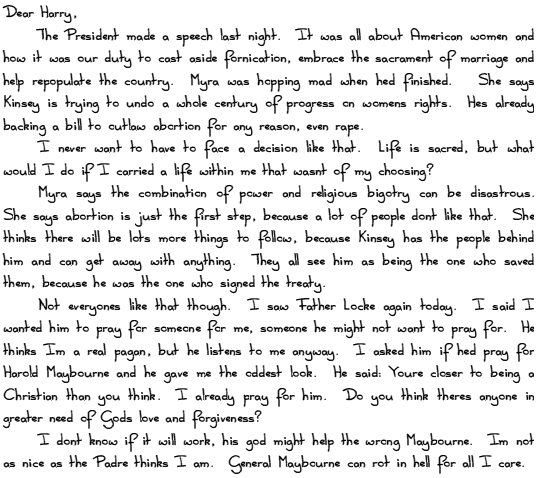 Dear Harry,
The President made a speech last night. It was all about American women and
how it was our duty to cast aside fornication, embrace the sacrament of marriage and
help repopulate the country. Myra was hopping mad when hed finished. She says
Kinsey is trying to undo a whole century of progress on womens rights. Hes already
backing a bill to outlaw abortion for any reason, even rape.
I never want to have to face a decision like that. Life is sacred, but what
would I do if I carried a life within me that wasnt of my choosing?
Myra says the combination of power and religious bigotry can be disastrous.
She says abortion is just the first step, because a lot of people dont like that. She
thinks there will be lots more things to follow, because Kinsey has the people behind
him and can get away with anything. They all see him as being the one who saved
them, because he was the one who signed the treaty.
Not everyones like that though. I saw Father Locke again today. I said I
wanted him to pray for someone for me, someone he might not want to pray for. He
thinks Im a real pagan, but he listens to me anyway. I asked him if hed pray for
Harold Maybourne and he gave me the oddest look. He said: Youre closer to being a
Christian than you think. I already pray for him. Do you think theres anyone in
greater need of Gods love and forgiveness?
I dont know if it will work, his god might help the wrong Maybourne. Im not
as nice as the Padre thinks I am. General Maybourne can rot in hell for all I care.